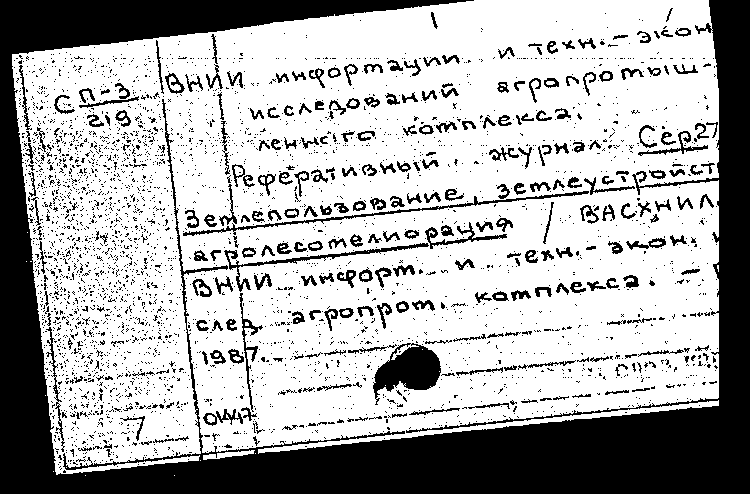 СП-3
219
ВНИИ информации и техн.- экон
исследований агропромыш-
ленного комплекса.
Реферативный журнал. Сер.27
Землепользование, землеустройст
агролесомелиорация / ВАСХНИЛ.
ВНИИ информ. и техн.- экон. и
след. агропром. комплекса. –
1987.
7